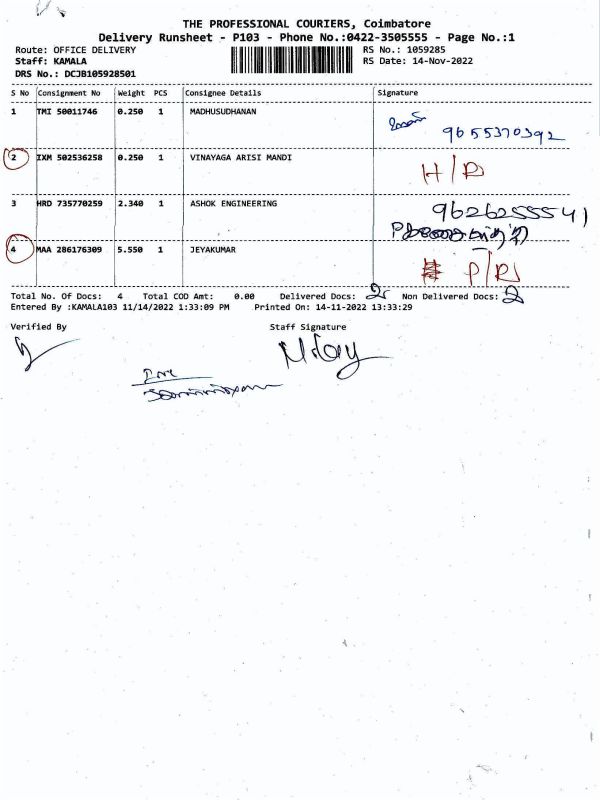 THE PROFESSIONAL COURIERS, Coimbatore
Delivery Runsheet - P103 - Phone No.:0422-3505555 - Page No.:1
Route: OFFICE DELIVERY RS No.: 1059285
Staff: KAMALA RS Date: 14-Nov-2022
DRS No.: DCJB105928501
S No Consignment No Weight PCS Consignee Details Signature
1 TMI 50011746 0.250 1 MADHUSUDHANAN
9655370392
2 IXM 502536258 0.250 1 VINAYAGA ARISI MANDI
H/R
3 HRD 735770259 2.340 1 ASHOK ENGINEERING 9626255541
4 MAA 286176309 5.550 1 JEYAKUMAR
P/R
Total No. Of Docs: 4 Total COD Amt: 0.00 Delivered Docs: 2 Non Delivered Docs: 2
Entered By :KAMALA103 11/14/2022 1:33:09 PM Printed On: 14-11-2022 13:33:29
Verified By Staff Signature